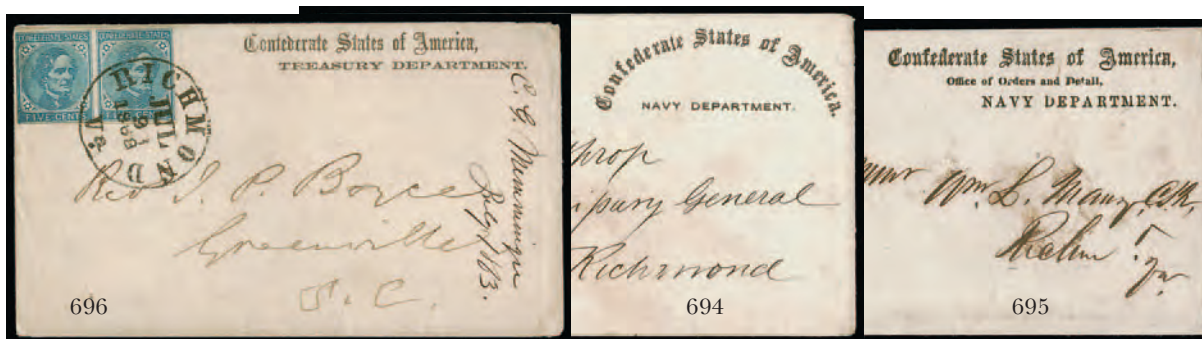 CONFEDERATE STATES CONFEDERATE STATES
FIVE CENTS FIVE CENTS
RICHMOND Va.
JUL
1863
Confederate States of America,
TREASURY DEPARTMENT.
C. G. Memminger
July 1863.
Rev J. P. Boyce
Greenville
S. C.
696
Confederate States of America.
NAVY DEPARTMENT.
throp
General
Richmond
694
Confederate States of America,
Office of Orders and Detail,
NAVY DEPARTMENT.
Wm. L. Maury, C.S.N,
695